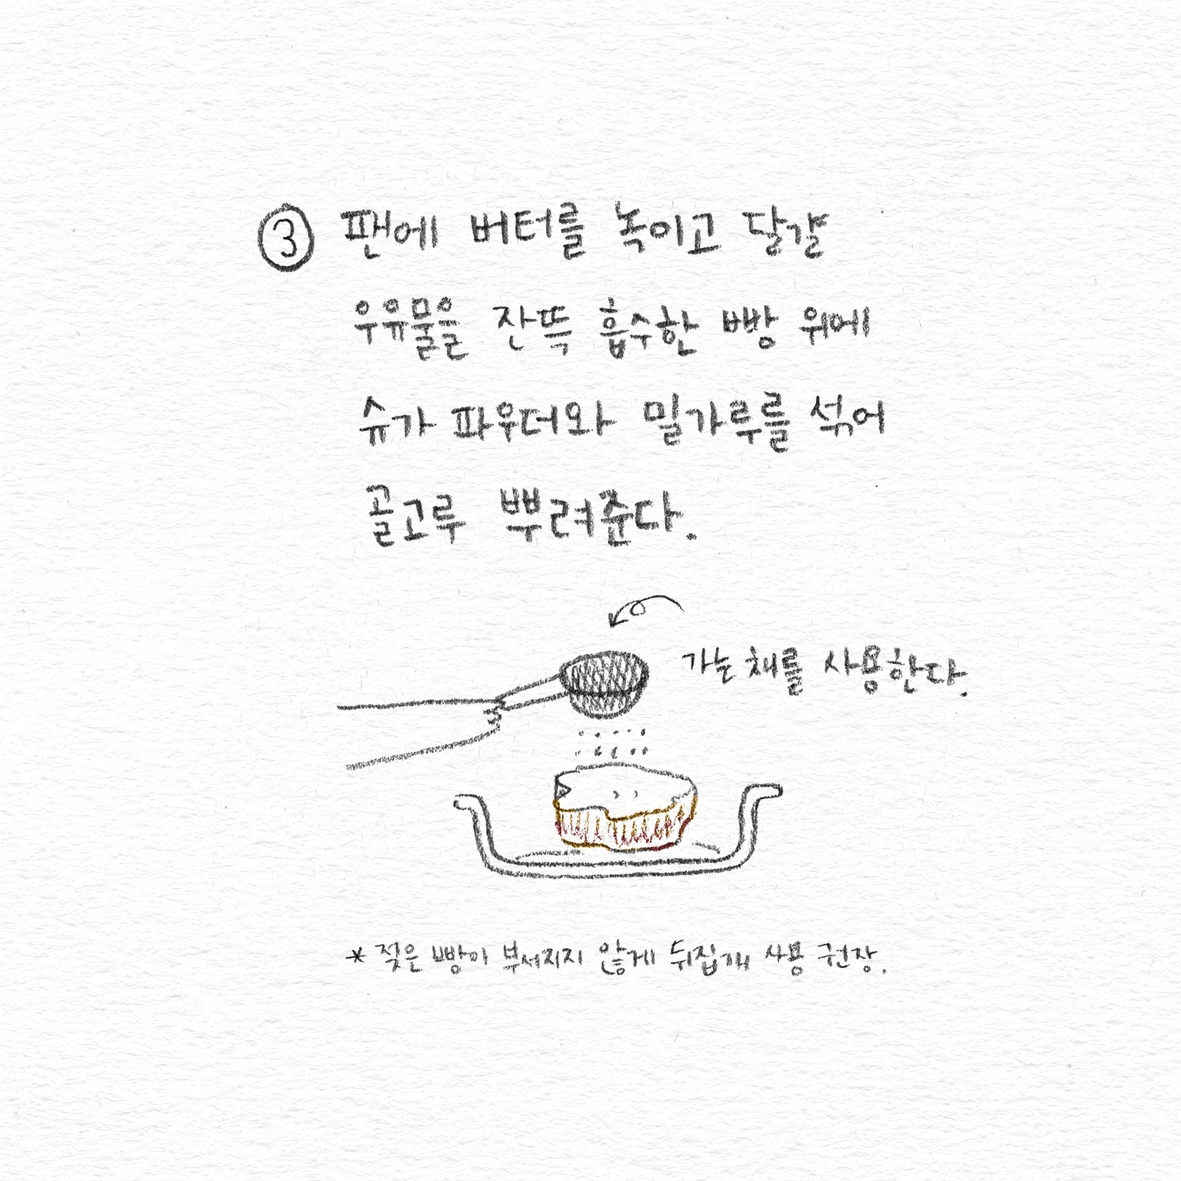 ③ 팬에 버터를 녹이고 달걀
우유물을 잔뜩 흡수한 빵 위에
슈가 파우더와 밀가루를 섞어
골고루 뿌려준다.
가는 채를 사용한다.
* 젖은 빵이 부서지지 않게 뒤집개 사용 권장.